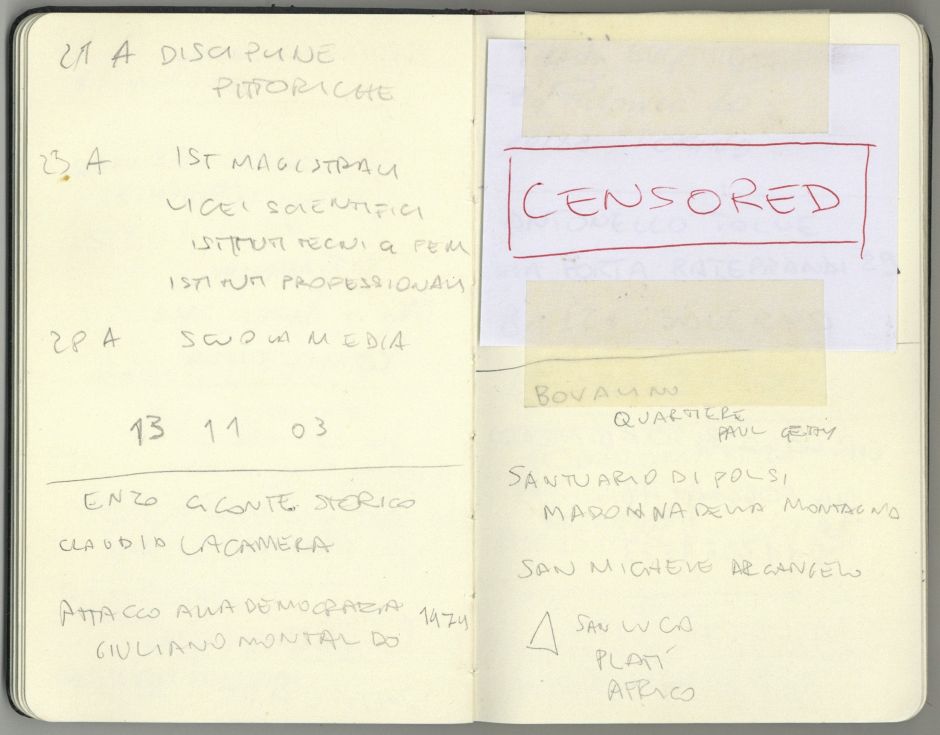 21 A DISCIPLINE
PITTORICHE
23 A IST MAGISTRALI
LICEI SCIENTIFICI
ISTITUTI TECNI FEM
ISTITUTI PROFESSIONALI
28 A SCUOLA MEDIA
13 11 03
ENZO CICONTE STORICO
CLAUDIO LACAMERA
ATTACCO ALLA DEMOCRAZIA 1974
GIULIANO MONTALDO
CENSORED
BOVALINO
QUARTIERE
PAUL GETTY
SANTUARIO DI POLSI
MADONNA DELLA MONTAGNA
SAN MICHELE ARCANGELO
SAN LUCA
PLATÍ
AFRICO